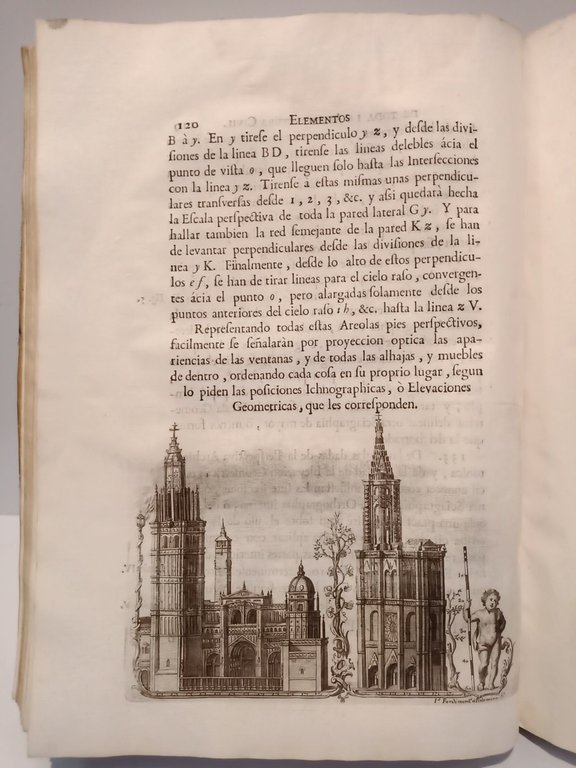 120 ELEMENTOS
B à y. En y tirese el perpendiculo y z, y desde las divi-
siones de la linea BD, tirense las lineas delebles ácia el
punto de vista o, que lleguen solo hasta las Intersecciones
con la linea y z. Tirense a estas mismas unas perpendicu-
lares transversas desde 1, 2, 3, &c. y assi quedarà hecha
la Escala perspectiva de toda la pared lateral G y. Y para
hallar tambien la red semejante de la pared K z, se han
de levantar perpendiculares desde las divisiones de la li-
nea y K. Finalmente, desde lo alto de estos perpendicu-
los e f, se han de tirar lineas para el cielo raso, convergen-
tes ácia el punto o, pero alargadas solamente desde los
puntos anteriores del cielo raso i h, &c. hasta la linea z V.
Representando todas estas Areolas pies perspectivos,
facilmente se señalaràn por proyeccion optica las apa-
riencias de las ventanas, y de todas las alhajas, y muebles
de dentro, ordenando cada cosa en su proprio lugar, segun
lo piden las posiciones Ichnographicas, ò Elevaciones
Geometricas, que les corresponden.